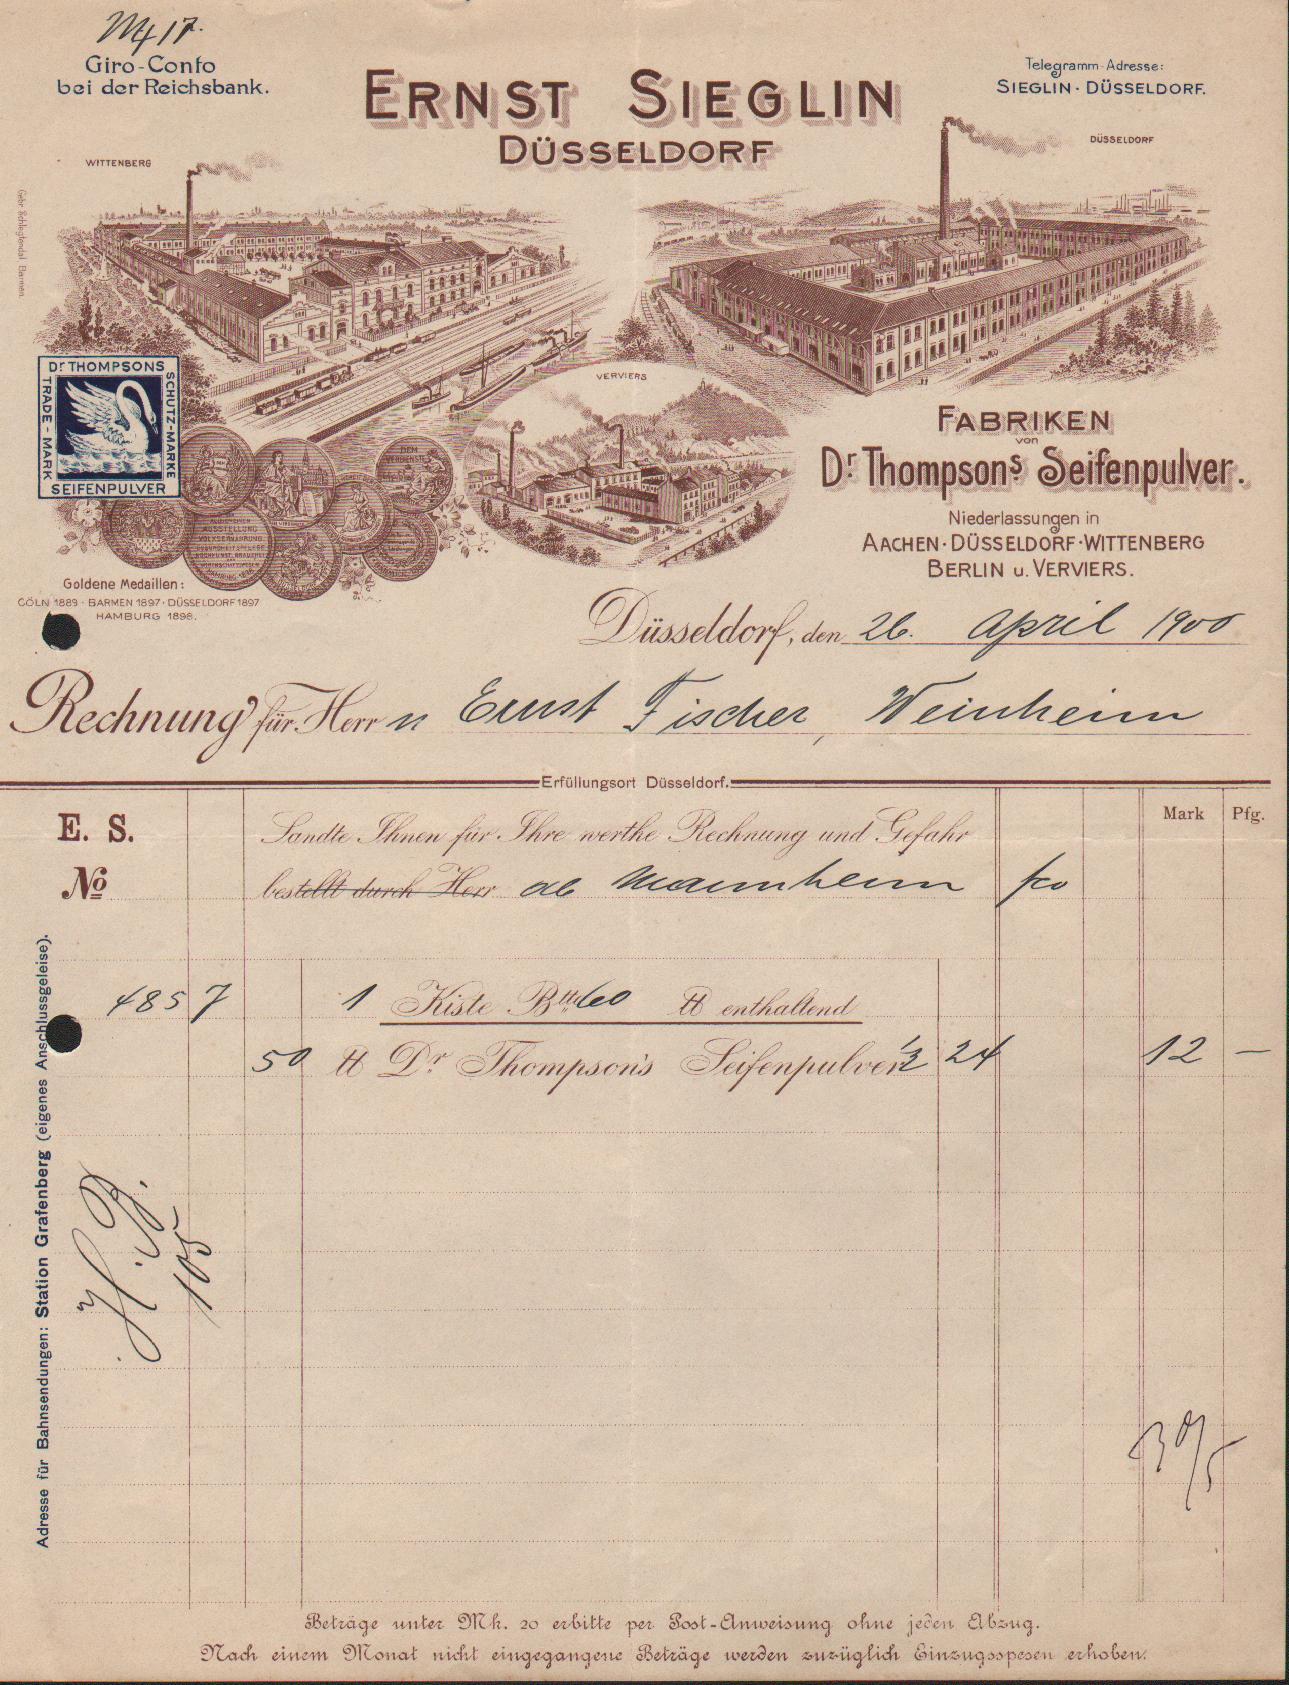 Giro-Conto
bei der Reichsbank.
Telegramm-Adresse:
SIEGLIN · DÜSSELDORF.
ERNST SIEGLIN
DÜSSELDORF
WITTENBERG
DÜSSELDORF
Gebr. Schlegtendal Barmen.
VERVIERS
Dr THOMPSONS
TRADE-MARK
SCHUTZ-MARKE
SEIFENPULVER
DEM
VERDIENSTE
AUSSTELLUNG
FABRIKEN
von
Dr Thompsons Seifenpulver.
Niederlassungen in
AACHEN·DÜSSELDORF·WITTENBERG
BERLIN u. VERVIERS.
Goldene Medaillen:
CÖLN 1889 · BARMEN 1897 · DÜSSELDORF 1897
HAMBURG 1898.
Düsseldorf, den 26. April 1900
Rechnung für Herrn Ernst Fischer, Weinheim
Erfüllungsort Düsseldorf.
E. S. Sandte Ihnen für Ihre werthe Rechnung und Gefahr Mark Pfg.
No bestellt durch Herr ab Mannheim fco
4857 1 Kiste Btto 60 ℔ enthaltend
50 ℔ Dr. Thompson's Seifenpulver ½ 24 12 —
Adresse für Bahnsendungen: Station Grafenberg (eigenes Anschlussgeleise).
105
30/5
Beträge unter Mk. 20 erbitte per Post-Anweisung ohne jeden Abzug.
Nach einem Monat nicht eingegangene Beträge werden zuzüglich Einzugsspesen erhoben.